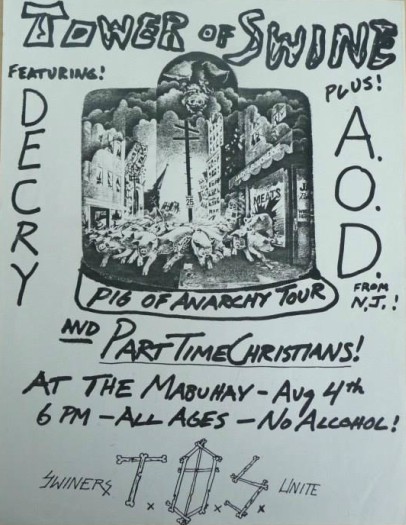 TOWER OF SWINE
FEATURING!
DECRY
PLUS!
A.O.D.
FROM
N.J.!
MEATS
25
PIG OF ANARCHY TOUR
AND PART TIME CHRISTIANS!
AT THE MABUHAY - AUG 4th
6 PM - ALL AGES - NO ALCOHOL!
SWINERS T.O.S UNITE
x x x